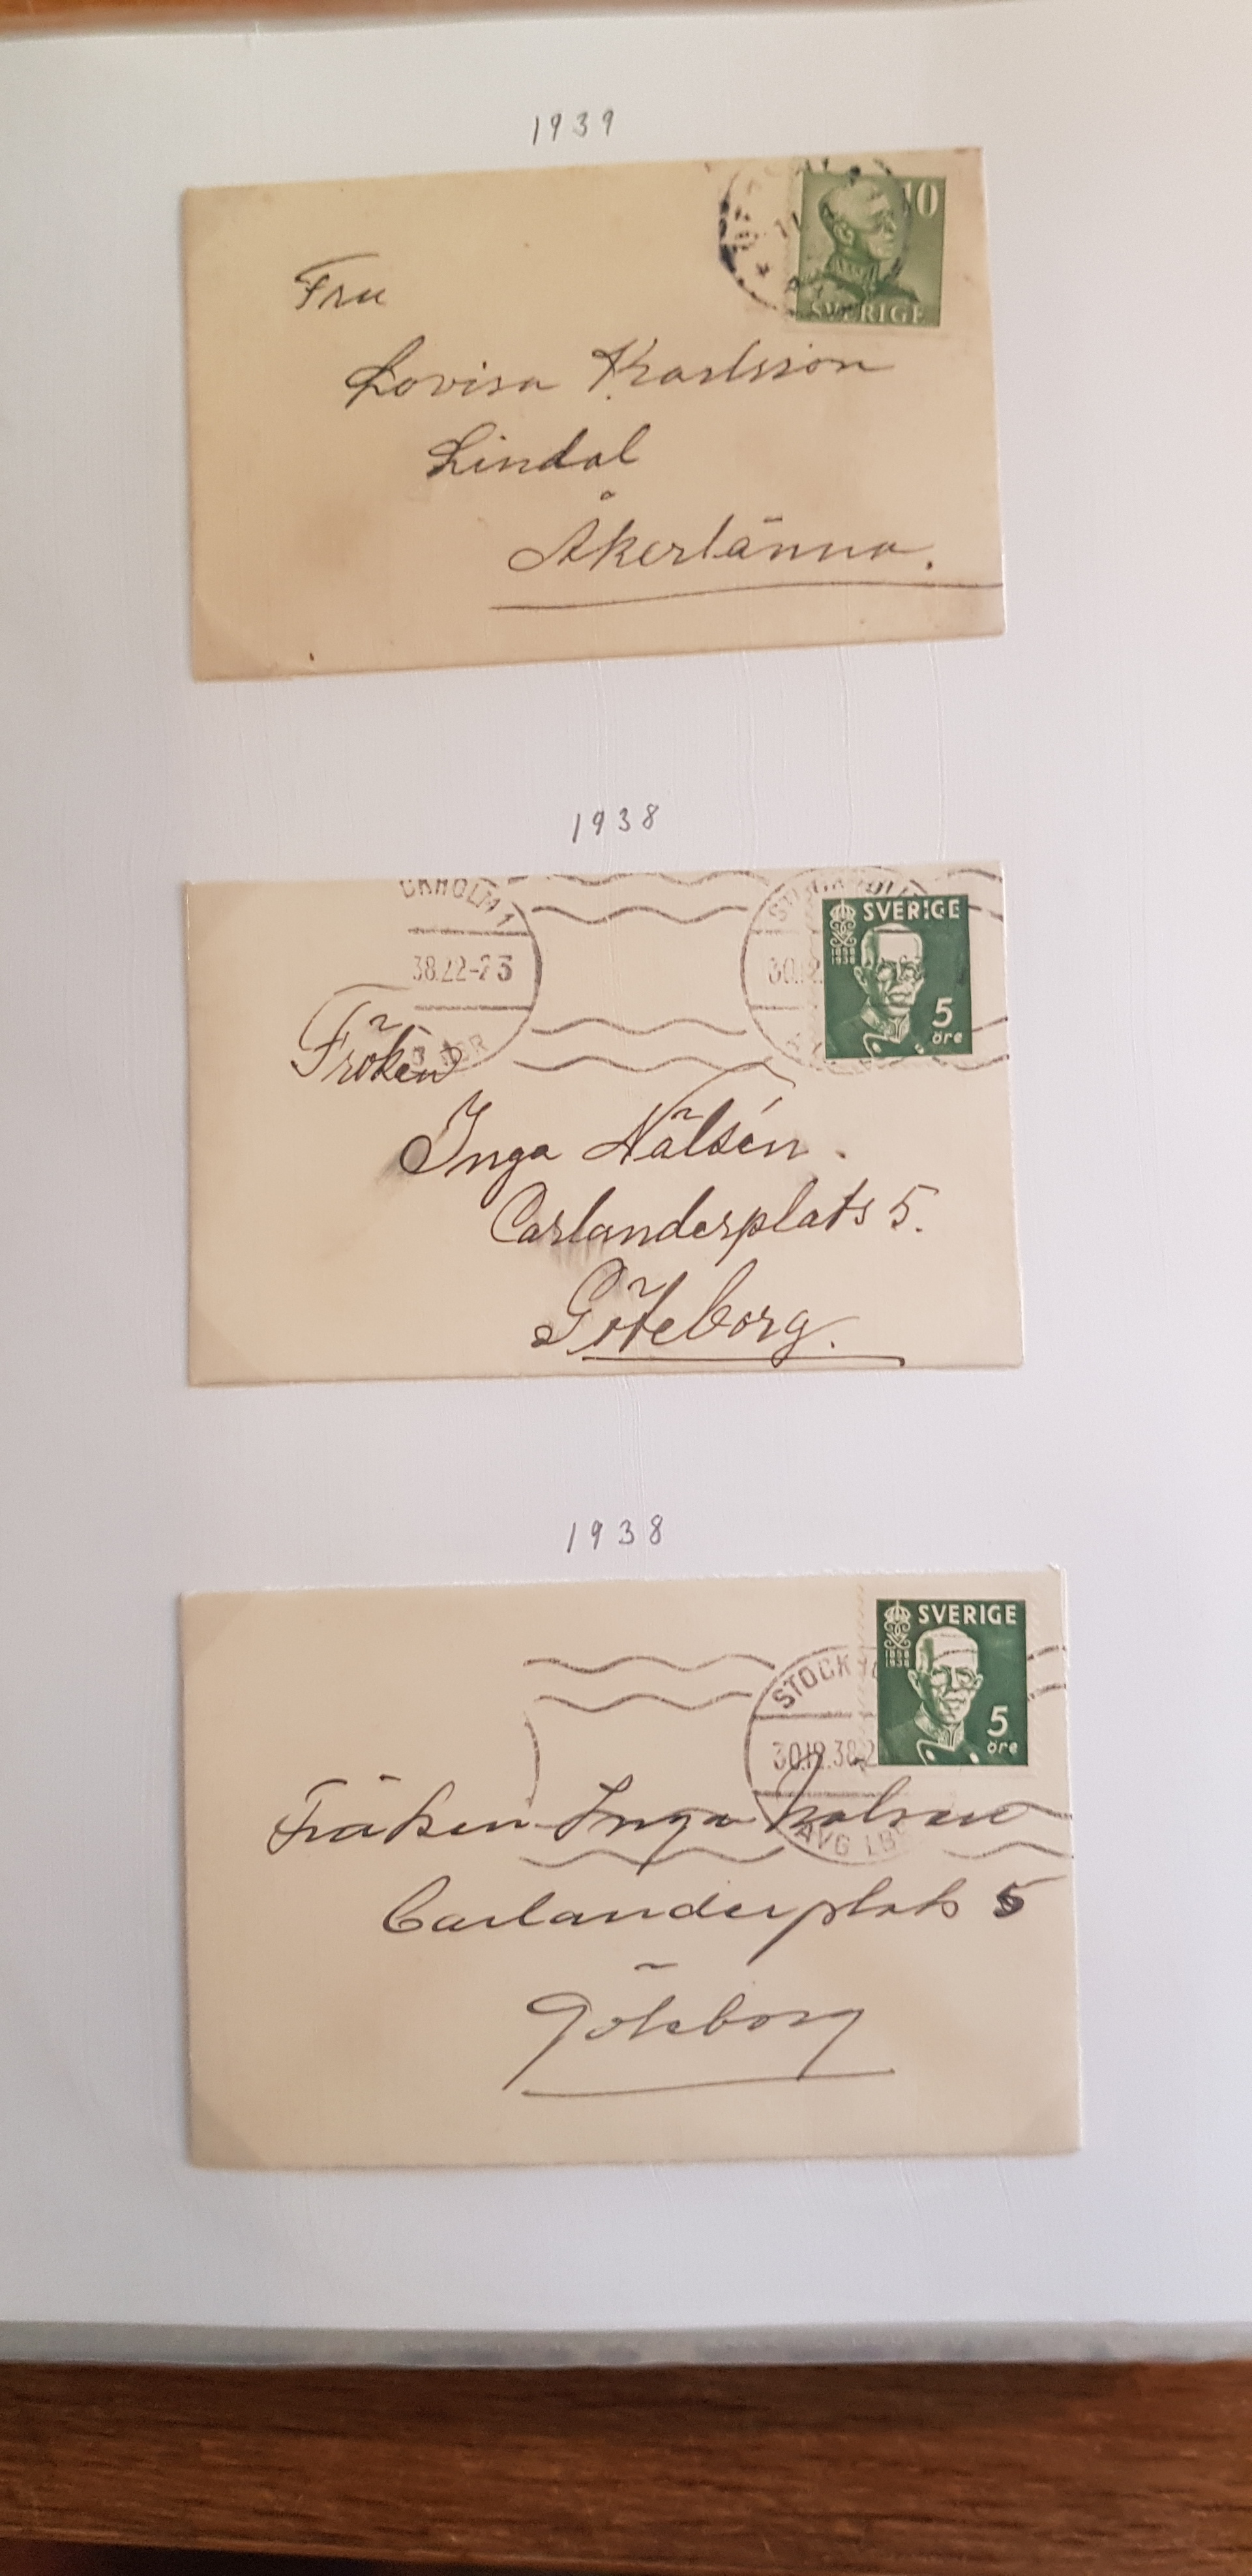 1939
10
SVERIGE
Fru
Lovisa Karlsson
Lindal
Åkerlänna.
1938
OCKHOLM 1
38.22-23
SVERIGE
1858
1938
5
öre
Fröken
Inga Nälsén.
Carlanderplats 5.
Göteborg.
1938
SVERIGE
1858
1938
5
öre
STOCKHO
30.12.38
AVG
Fröken Inga
Carlanderplats 5
Göteborg